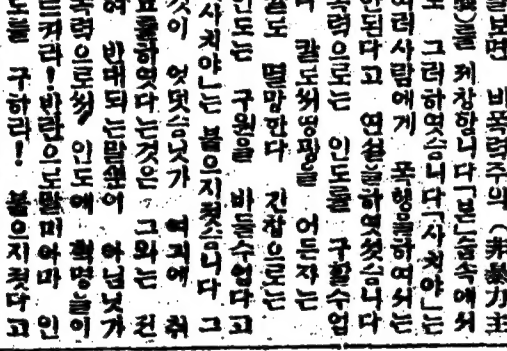 보면 비폭력주의 (非暴力主
義)를 제창합니다「보」숨속에서
도 그러하엿슴니다「사치야」는
여러사람에게 폭행을하여서는
안된다고 연설을하엿섯슴니다
폭력으로는 인도를 구할수업
다 어든자는
멸망한다 긴참으로는
인도는 구원을 바들수업다고
「사치야」는 붉으지젓슴니다 그
것이 엇덧슴닛가 여긔에 취
표를하엿다는것은 그와는 전
여 반대되는말쎈이 아님닛가
폭력으로써 인도에 혁명을이
드켜라!반란으로말미아마 인
도를 구하라! 붉으지젓다고